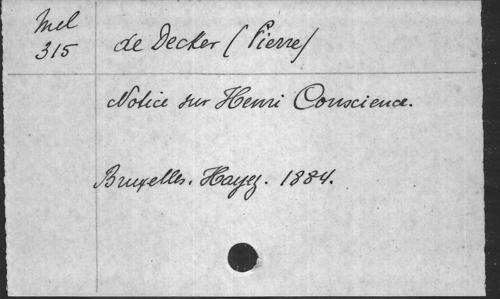 Mel
315
de Decker (Pierre)
Notice sur Henri Conscience.
Bruxelles. Hayez. 1884.